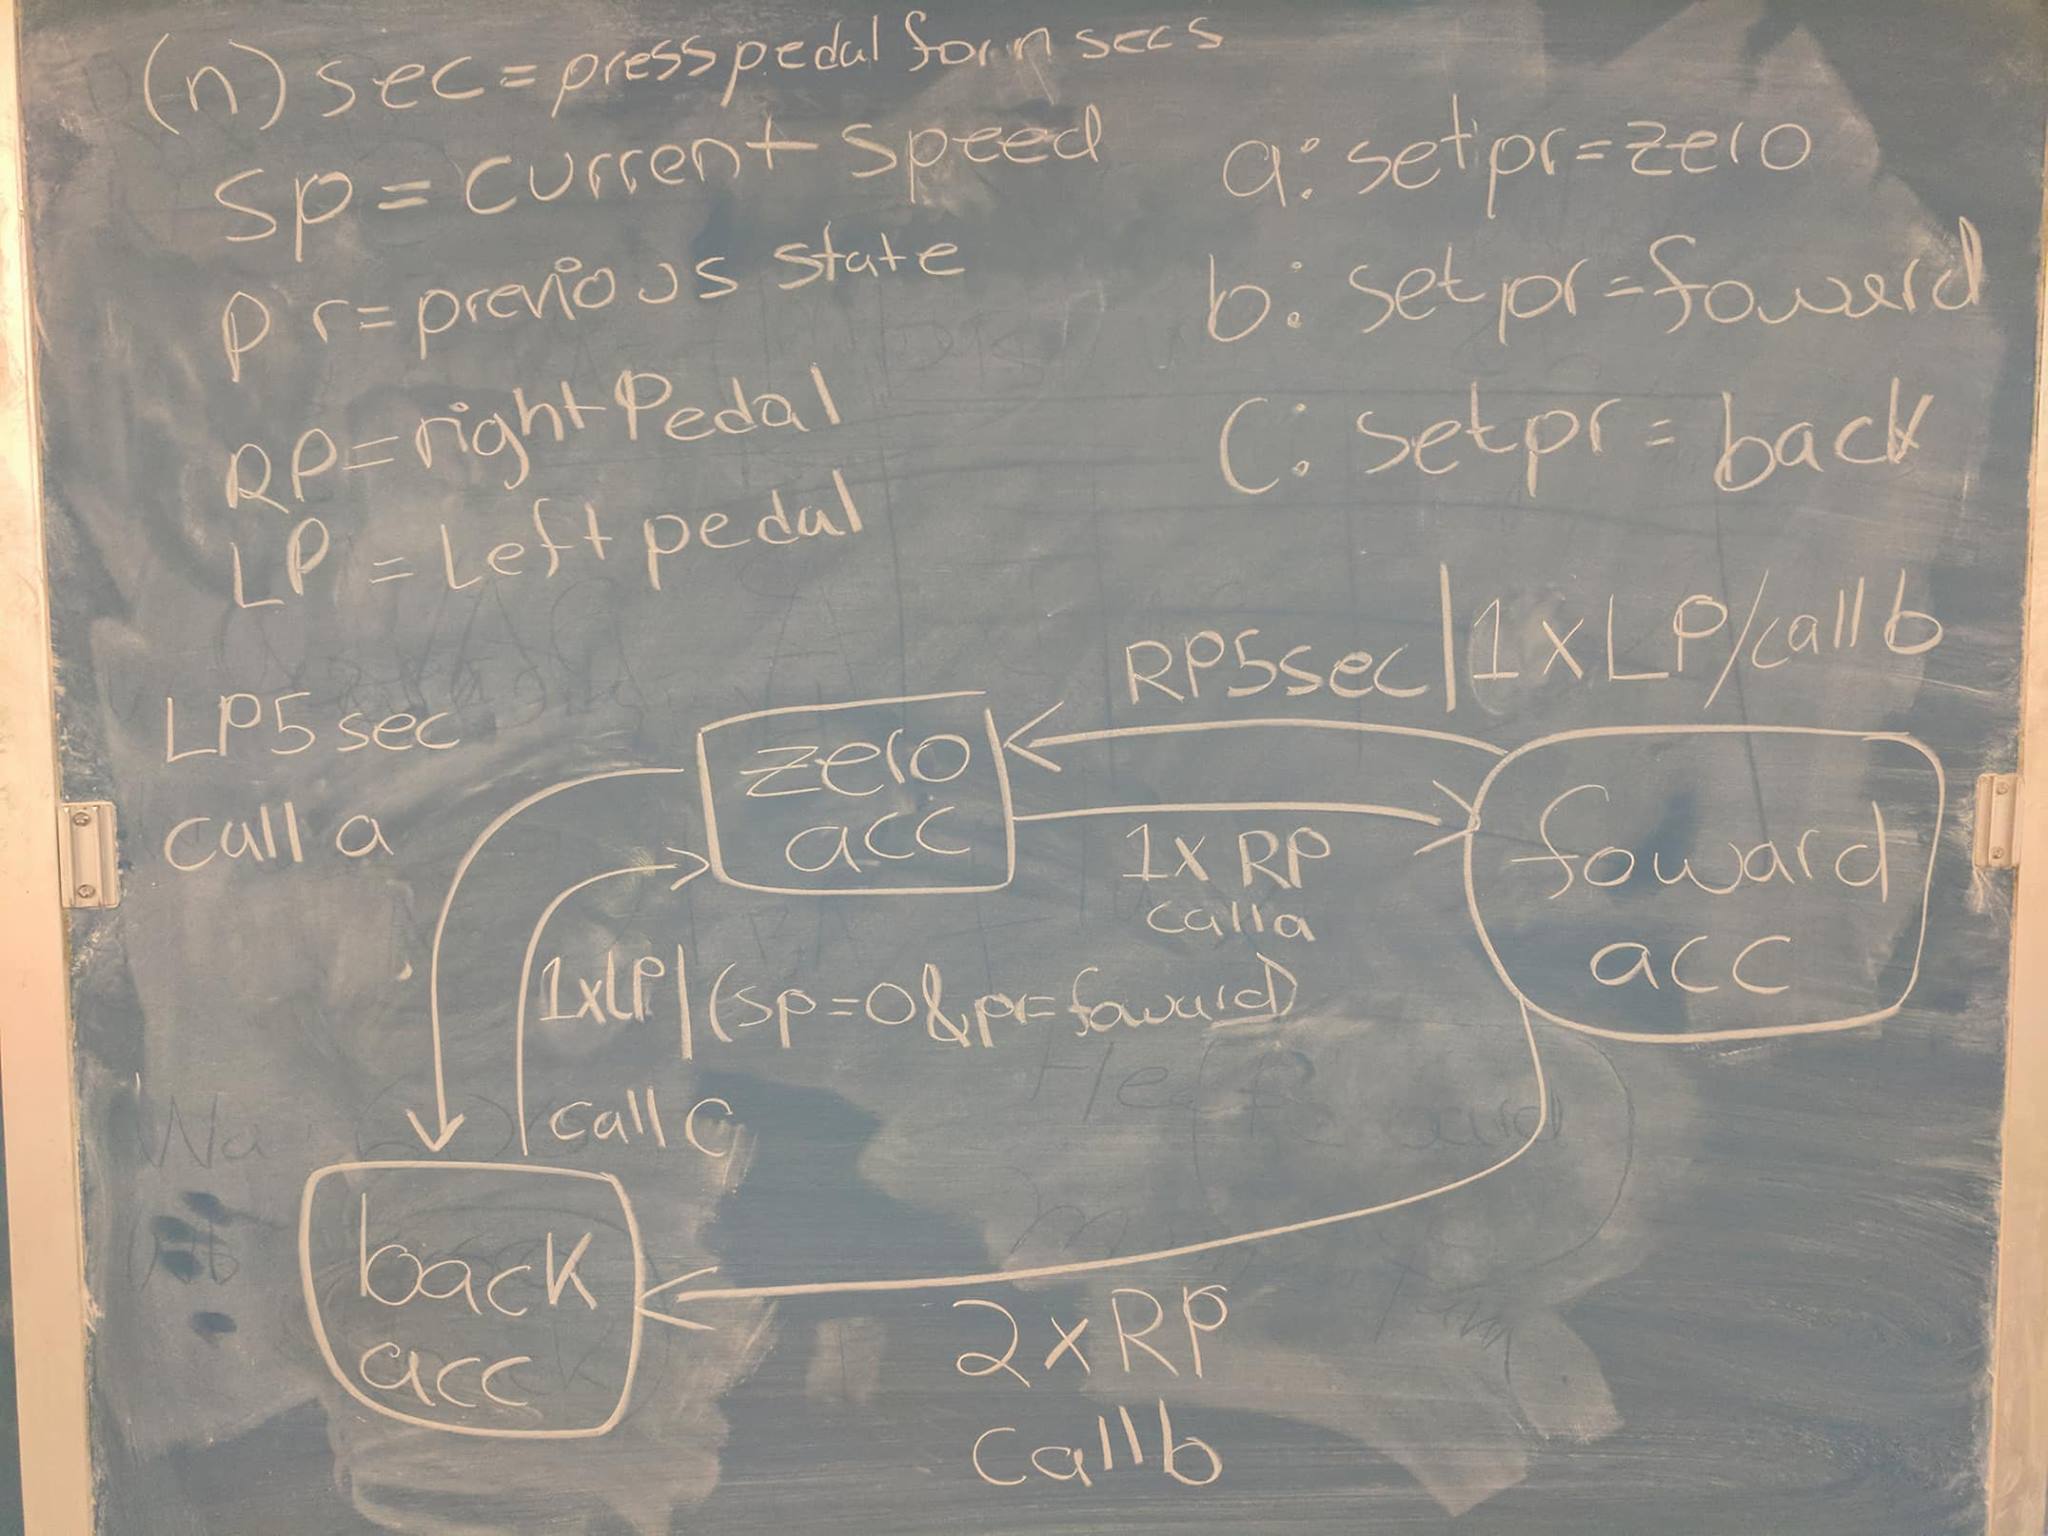 (n) sec = press pedal for n secs
sp = current speed
pr = previous state
RP = right Pedal
LP = Left pedal
a: set pr = zero
b: set pr = foward
C: set pr = back
RP5sec | 1xLP/call b
LP5sec
call a
zero
acc
1x RP
call a
foward
acc
1xLP | (sp=0 & pr=foward)
call C
back
acc
2xRP
call b